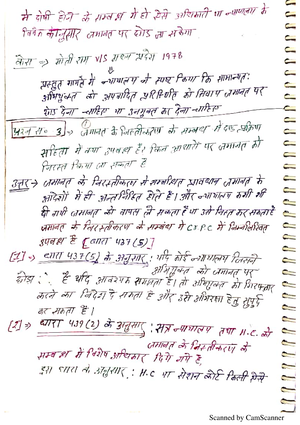 में दोषी होने के सम्बन्ध में हो ऐसे अधिकारी या न्यायालय के
विवेक कानुसार जमानत पर छोडा जा सकेगा
केस :- मोती राम V/S मध्य प्रदेश 1978
प्रस्तुत मामले में न्यायालय ने स्पष्ट किया कि सामान्यतः
अभियुक्त को अपवादित परिस्थिति को सिवाय जमानत पर
छोड देना चाहिए या उन्मुक्त कर देना चाहिए
प्रश्न स० 3) → जमानत के निरस्तीकरण के सम्बन्ध में दण्ड प्रक्रिया
संहिता में क्या उपबन्ध है। किन आधारों पर जमानत को
निरस्त किया जा सकता है
उत्तर → जमानत के निरस्तीकरण से सम्बन्धित प्रावधान जमानत के
आदेशों में ही अन्तर्निहित होते हैं। और न्यायालय कभी भी
दी गयी जमानत को वापस ले सकता है या उसे निरस्त कर सकता है
जमानत के निरस्तीकरण के सम्बन्ध में CrPC में निम्नलिखित
उपबन्ध है [धारा 437 (5)]
[1] → धारा 437 (5) के अनुसार : यदि कोई न्यायालय जिसने
अभियुक्त को जमानत पर
छोडा है यदि आवश्यक समझता है। तो अभियुक्त को गिरफ्तार
करने का निर्देश दे सकता है और उसे अभिरक्षा हेतु सुपुर्द
कर सकता है।
[2] → धारा 439 (2) के अनुसार : सत्र न्यायालय तथा H.C. को
जमानत के निरस्तीकरण के
सम्बन्ध में विशेष अधिकार दिये गये है,
इस धारा के अनुसार : H.C या सेशन कोर्ट किसी ऐसे
Scanned by CamScanner